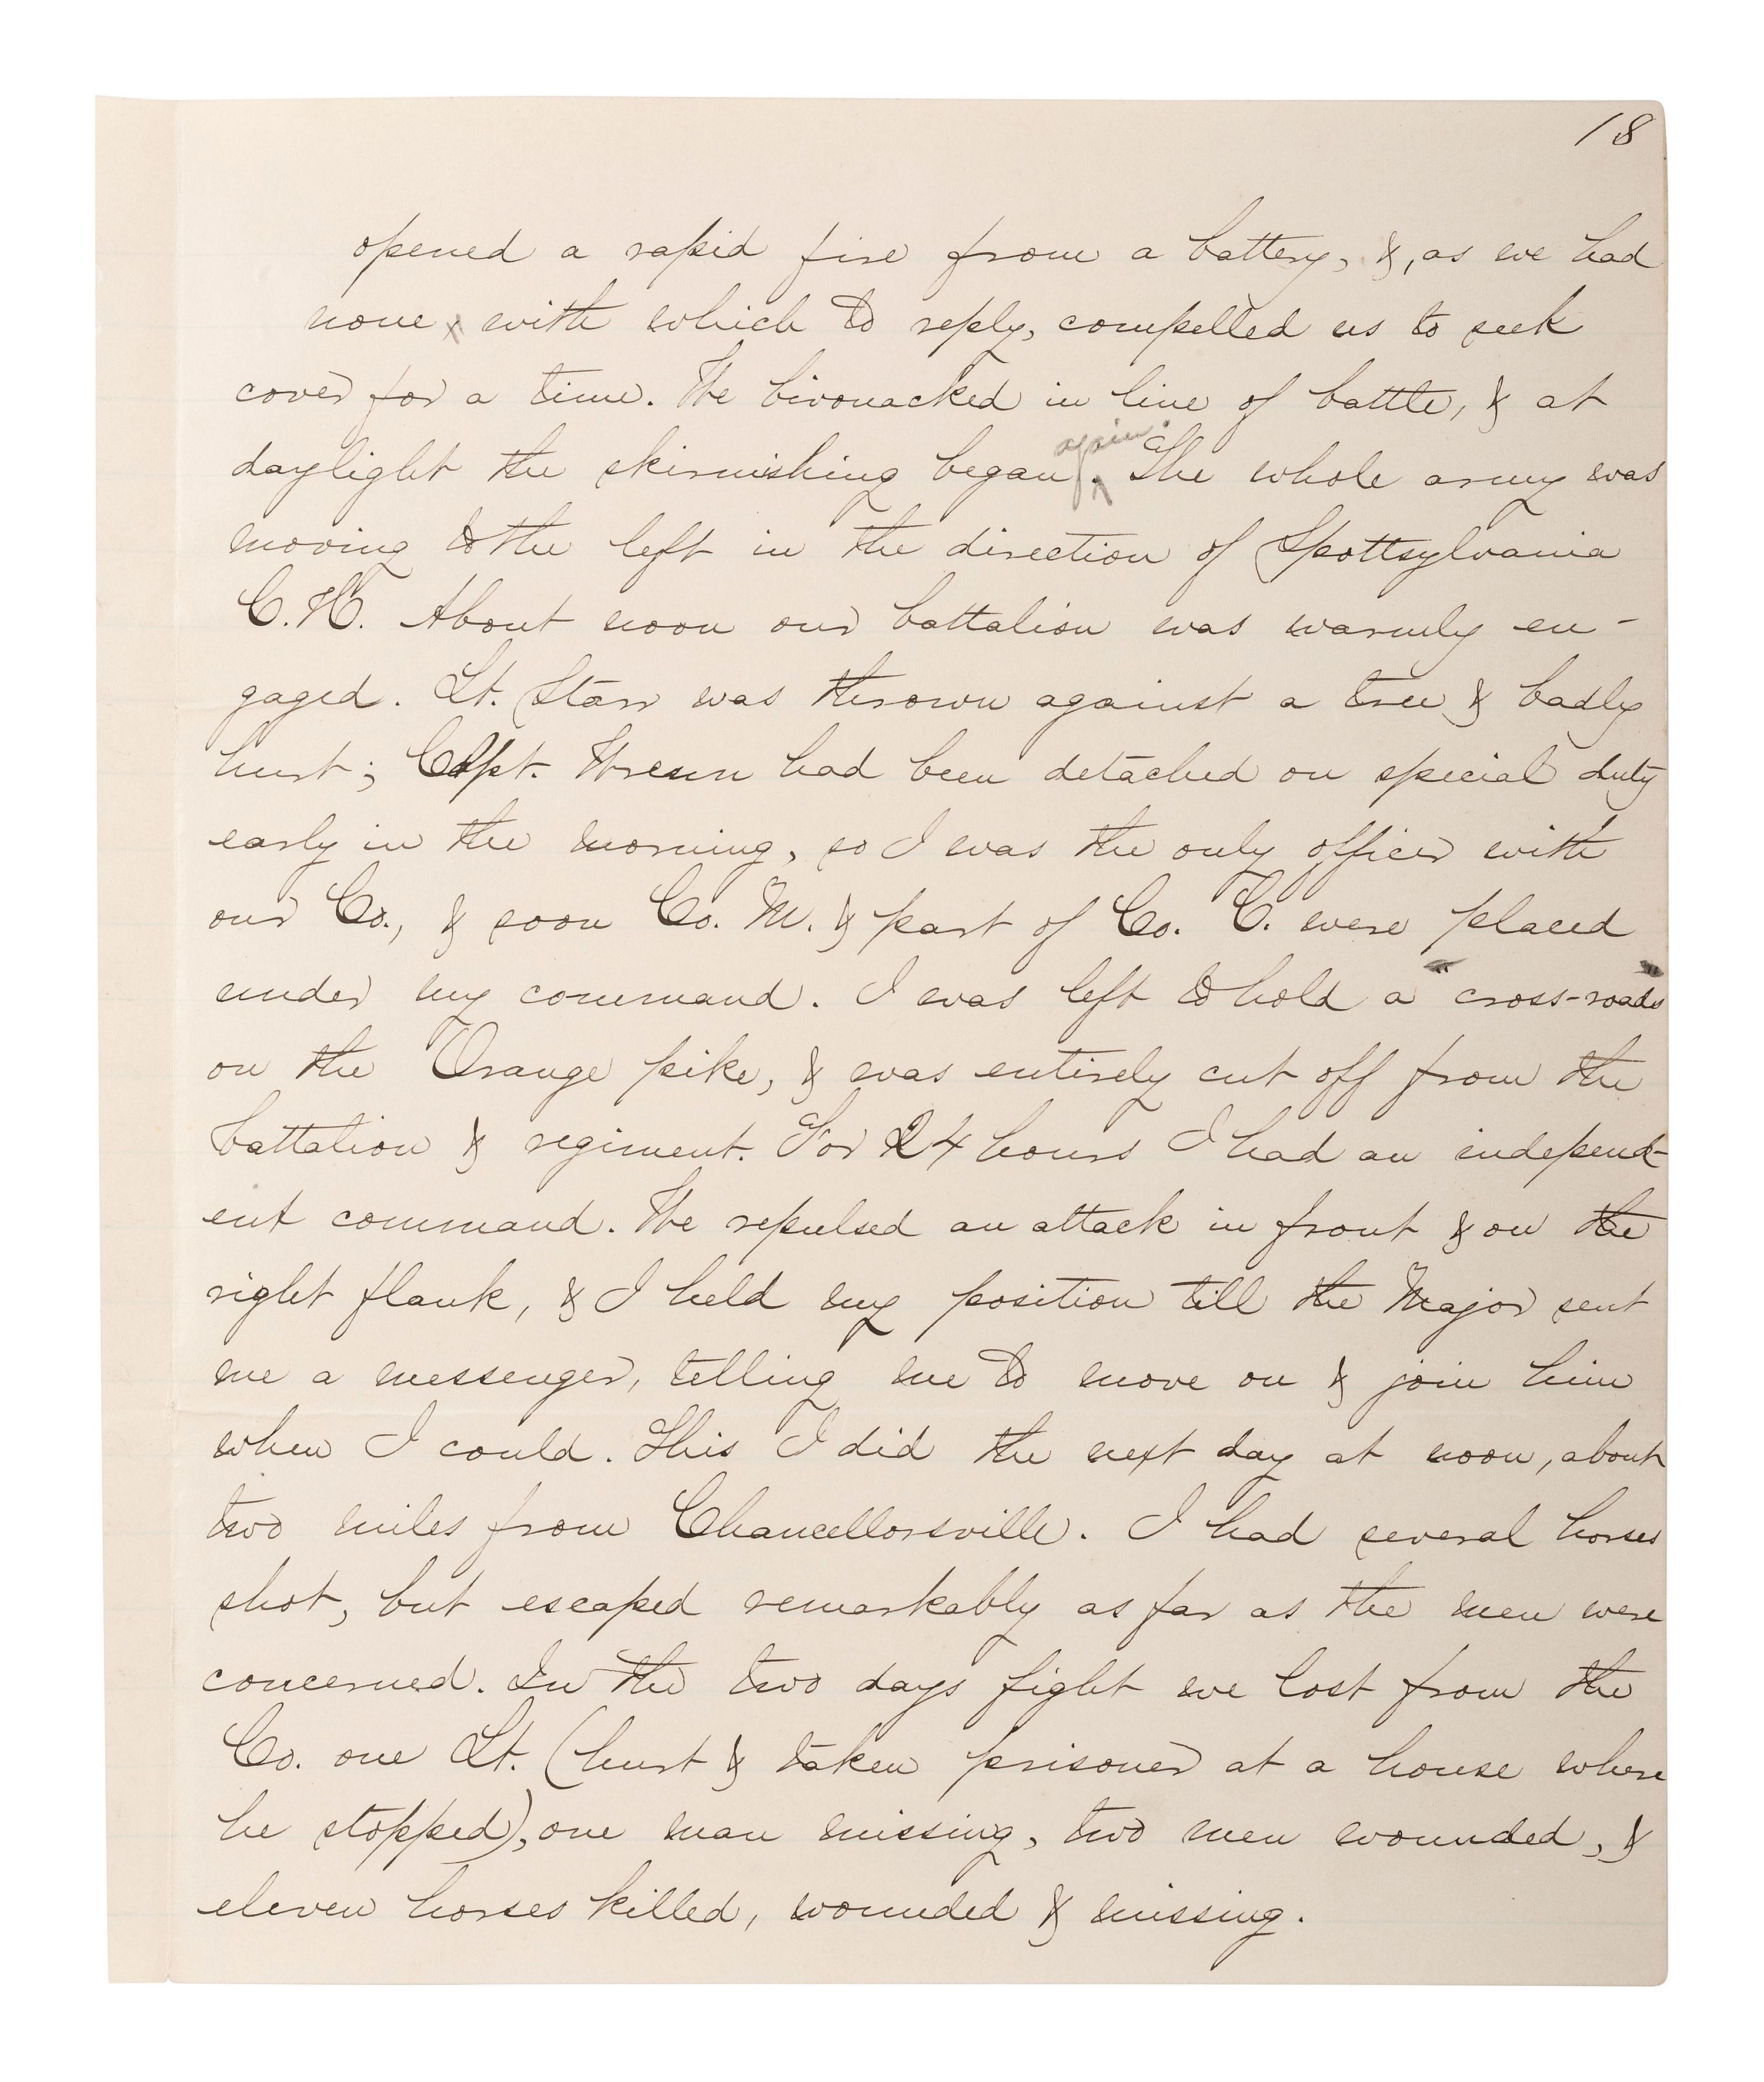 18
opened a rapid fire from a battery, &, as we had
none, with which to reply, compelled us to seek
cover for a time. We bivouacked in line of battle, & at
daylight the skirmishing began again. The whole army was
moving to the left in the direction of Spottsylvania
C.H. About noon our battalion was warmly en-
gaged. Lt. Starr was thrown against a tree & badly
hurt; Capt. had been detached on special duty
early in the morning, so I was the only officer with
our Co., & soon Co. M. & part of Co. C. were placed
under my command. I was left to hold a cross-roads
on the Orange pike, & was entirely cut off from the
battalion & regiment. For 24 hours I had an independ-
ent command. We repulsed an attack in front & on the
right flank, & I held my position till the Major sent
me a messenger, telling me to move on & join him
when I could. This I did the next day at noon, about
two miles from Chancellorsville. I had several horses
shot, but escaped remarkably as far as the men were
concerned. In the two days fight we lost from the
Co. one Lt. (hurt & taken prisoner at a house where
he stopped), one man missing, two men wounded, &
eleven horses killed, wounded & missing.